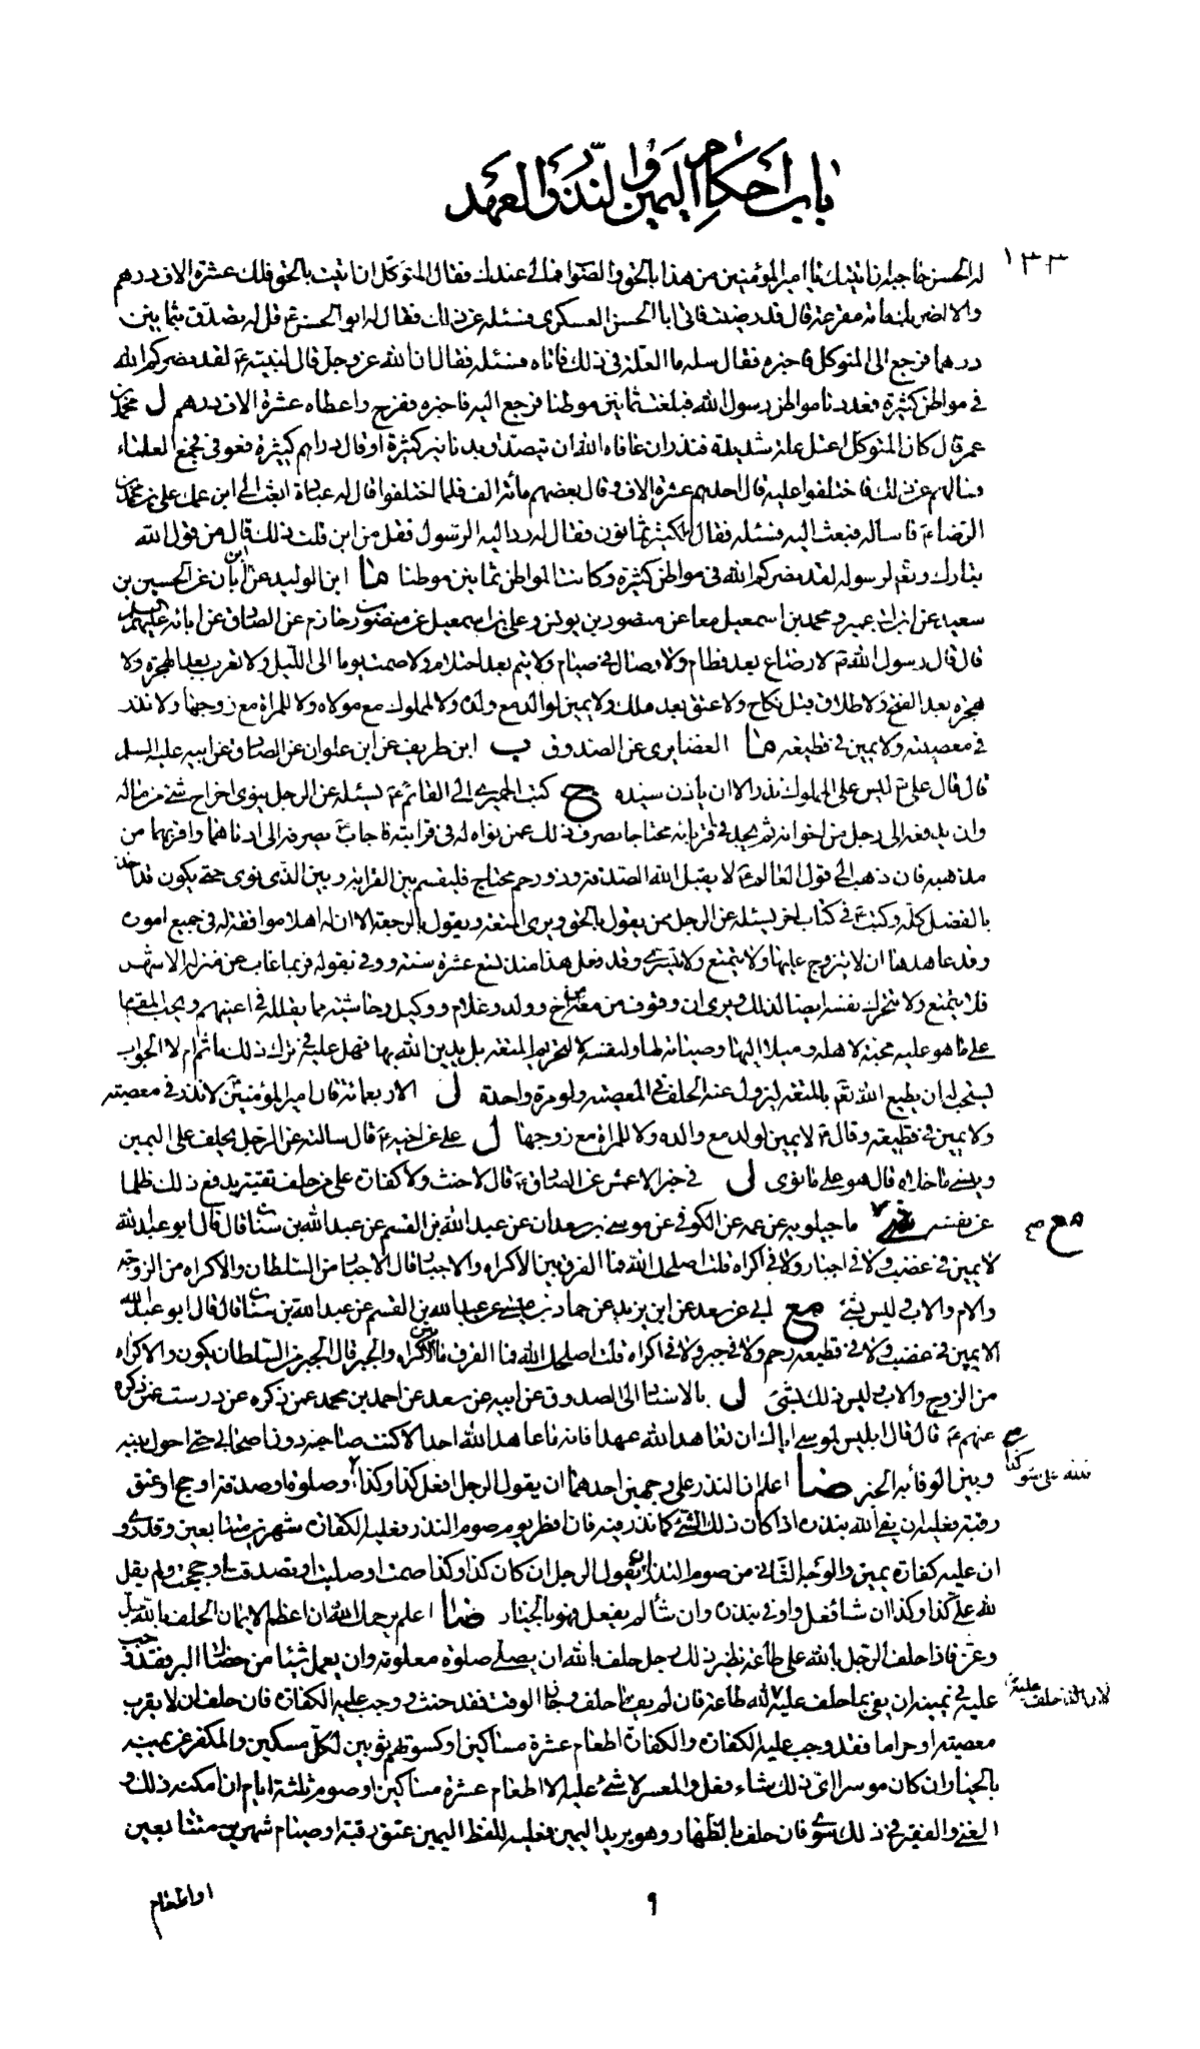 باب احكام اليمين والنذر والعهد
١٣٣
له الحسن حاجبه ان اتيتك يا امير المؤمنين من هذا بالحق والصواب فمالي عندك فقال المتوكل ان اتيت بالحق فلك عشرة الاف درهم
والا اضربك مائة مقرعة قال قد رضيت فاتى ابا الحسن العسكري فسئله عن ذلك فقال له ابو الحسن ع قل له يتصدق بثمانين
درهما فرجع الى المتوكل فاخبره فقال سله ما العلة في ذلك فاتاه فسئله فقال ان الله عز وجل قال لنبيه ص لقد نصركم الله
في مواطن كثيرة فعددنا مواطن رسول الله فبلغت ثمانين موطنا فرجع اليه فاخبره ففرح واعطاه عشرة الاف درهم ل محمد بن
عمر قال كان المتوكل اعتل علة شديدة فنذر ان عافاه الله ان يتصدق بدنانير كثيرة او قال دراهم كثيرة فعوفى فجمع العلماء
فسالهم عن ذلك فاختلفوا عليه قال احدهم عشرة الاف وقال بعضهم مائة الف فلما اختلفوا قال له عبادة ابعث الى ابن عمك علي بن محمد بن
الرضا ع فاساله فبعث اليه فسئله فقال الكثير ثمانون فقال له رد اليه الرسول فقل من اين قلت ذلك قال من قول الله
تبارك وتع لرسوله لقد نصركم الله في مواطن كثيرة وكانت المواطن ثمانين موطنا ما ابن الوليد عن ابن ابان عن الحسين بن
سعيد عن ابن ابي عمير ومحمد بن اسمعيل معا عن منصور بن يونس وعلي بن اسمعيل عن منصور بن حازم عن الصادق عن ابائه عليهم السلم
قال قال رسول الله ص لا رضاع بعد فطام ولا وصال في صيام ولا يتم بعد احتلام ولا صمت يوما الى الليل ولا تعرب بعد الهجرة ولا
هجرة بعد الفتح ولا طلاق قبل نكاح ولا عتق بعد ملك ولا يمين لوالد مع ولده ولا لمملوك مع مولاه ولا للمراة مع زوجها ولا نذر
في معصية ولا يمين في قطيعة ما الغضايرى عن الصدوق ب ابن طريف عن ابن علوان عن الصادق عن ابيه عليه السلم
قال قال علي ع ليس على المملوك نذر الا ان ياذن سيده ج كتب الحميري الى القائم ع يسئله عن الرجل ينوى اخراج شئ من ماله
وان يدفعه الى رجل من اخوانه ثم يجد في اقربائه محتاجا يصرف ذلك عمن نواه له في قرابته فاجاب ع يصرفه الى ادناهما واقربهما من
مذهبه فان ذهب الى قول العالم ع لا يقبل الله الصدقة وذو رحم محتاج فليقسم بين القرابة وبين الذي نوى حتى يكون قد اخذ
بالفضل كله وكتب ع في كتاب اخر يسئله عن الرجل ممن يقول بالحق ويرى المتعة ويقول بالرجعة الا ان له اهلا موافقة له في جميع اموره
وقد عاهدها ان لا يتزوج عليها ولا يتمتع ولا يتسرى وقد فعل هذا منذ تسع عشرة سنة ووفى بقوله فربما غاب عن منزله الاشهر
فلا يتمتع ولا تتحرك نفسه ايضا لذلك ويرى ان وقوف من معه من اخ وولد وغلام ووكيل وحاشية مما يقلله في اعينهم ويحب المقام
على ما هو عليه محبة لاهله وميلا اليها وصيانة لها ولنفسه لا لتحريم المتعة بل يدين الله بها فهل عليه في ترك ذلك ماثم ام لا الجواب
يستحب له ان يطيع الله تع بالمتعة ليزول عنه الحلف في المعصية ولو مرة واحدة ل الاربعمائة قال امير المؤمنين ع لا نذر في معصية
ولا يمين في قطيعة وقال ع لا يمين لولد مع والده ولا للمراة مع زوجها ل علي عن اخيه ع قال سالته عن الرجل يحلف على اليمين
وينسى ما حاله قال هو على ما نوى ل في خبر الاعمش عن الصادق ع قال لا حنث ولا كفارة على من حلف تقية يدفع ذلك ظلما
عن نفسه ماجيلويه عن عمه عن الكوفي عن موسى بن سعدان عن عبد الله بن القسم عن عبد الله بن سنان قال قال ابو عبد الله
مع
لا يمين في غضب ولا في اجبار ولا في اكراه قلت اصلحك الله فما الفرق بين الاكراه والاجبار قال الاجبار من السلطان والاكراه من الزوجة
والام والاب وليس بشئ مع ابي عن سعد عن ابن يزيد عن حماد بن عيسى عن عبد الله بن القسم عن عبد الله بن سنان قال قال ابو عبد الله
لا يمين في غضب ولا في قطيعة رحم ولا في جبر ولا في اكراه قلت اصلحك الله فما الفرق بين الاكراه والجبر قال الجبر من السلطان يكون والاكراه
من الزوج والاب وليس ذلك بشئ ل بالاسناد الى الصدوق عن ابيه عن سعد عن احمد بن محمد عمن ذكره عن درست عمن ذكره
عنهم ع قال قال ابليس لموسى اياك ان تعاهد الله عهدا فانه ما عاهد الله احد الا كنت صاحبه دون اصحابي حتى احول بينه
وبين الوفاء به الخبر ضا اعلم ان النذر على وجهين احدهما ان يقول الرجل افعل كذا وكذا وصلوة او صدقة او حج او عتق
رقبة فعليه ان يفي لله بنذره اذا كان ذلك الشئ كما نذر فيه فان افطر يوم صوم النذر فعليه الكفارة شهرين متتابعين وقد روي
ان عليه كفارة يمين والوجه الثاني من صوم النذر ان يقول الرجل ان كان كذا وكذا صمت او صليت او تصدقت او حججت ولم يقل
لله علي كذا وكذا ان شاء فعل واوفى بنذره وان شاء لم يفعل فهو بالخيار ضا اعلم يرحمك الله ان اعظم الايمان الحلف بالله جل
وعز فاذا حلف الرجل بالله على طاعة نظير ذلك رجل حلف بالله ان يصلي صلوة معلومة وان يعمل شيئا من خصال البر فقد وجب
عليه في يمينه ان يفي بما حلف عليه لله طاعة فان لم يف بما حلف وجاز الوقت فقد حنث ووجب عليه الكفارة فان حلف ان لا يقرب
معصية او حراما فقد وجب عليه الكفارة والكفارة اطعام عشرة مساكين او كسوتهم ثوبين لكل مسكين والمكفر عن يمينه
بالخيار ان كان موسرا اي ذلك شاء فعل والمعسر لا شئ عليه الا اطعام عشرة مساكين او صوم ثلثة ايام ان امكنه ذلك و
الغني والفقير في ذلك سوى فان حلف بالظهار وهو يريد اليمين فعليه للفظ اليمين عتق رقبة او صيام شهرين متتابعين
او اطعام
٩